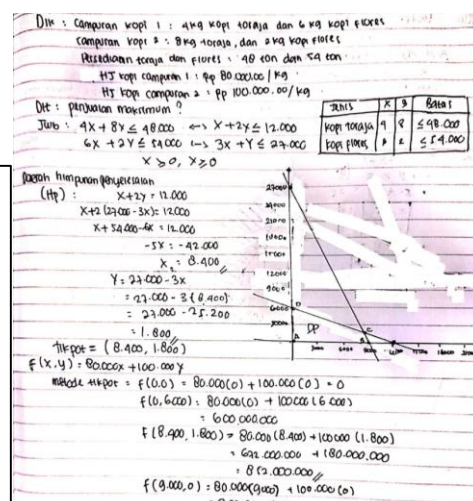 Dik : Campuran kopi 1 : 4 kg kopi toraja dan 6 kg kopi flores
campuran kopi 2 : 8 kg toraja, dan 2 kg kopi flores
Persediaan toraja dan flores : 48 ton dan 54 ton
HJ kopi campuran 1 : Rp 80.000.00 / kg
HJ kopi campuran 2 = Rp 100.000,00 / kg
Dit : penjualan maksimum ?
Jenis x y Batas
kopi toraja 4 8 ≤ 48.000
kopi flores 2 ≤ 54.000
Jwb : 4x + 8y ≤ 48.000 ↔ x + 2y ≤ 12.000
6x + 2y ≤ 54.000 ↔ 3x + y ≤ 27.000
x ≥ 0, x ≥ 0
Daerah himpunan penyelesaian
(Hp) : x + 2y = 12.000
x + 2 (27.000 - 3x) = 12.000
x + 54.000 - 6x = 12.000
-5x = -42.000
x = 8.400
y = 27.000 - 3x
= 27.000 - 3 (8.400)
= 27.000 - 25.200
= 1.800
tikpot = (8.400, 1.800)
27000
24000
21000
12000
9000
6000 D
3000
DP
C
A 3000 6000 B
f(x,y) = 80.000x + 100.000y
metode tikpot = f(0,0) = 80.000(0) + 100.000(0) = 0
f(0,6000) = 80.000(0) + 100.000(6.000)
= 600.000.000
f(8.400, 1.800) = 80.000(8.400) + 100.000 (1.800)
= 672.000.000 + 180.000.000
= 852.000.000
f(9.000,0) = 80.000(9000) + 100.000(0)